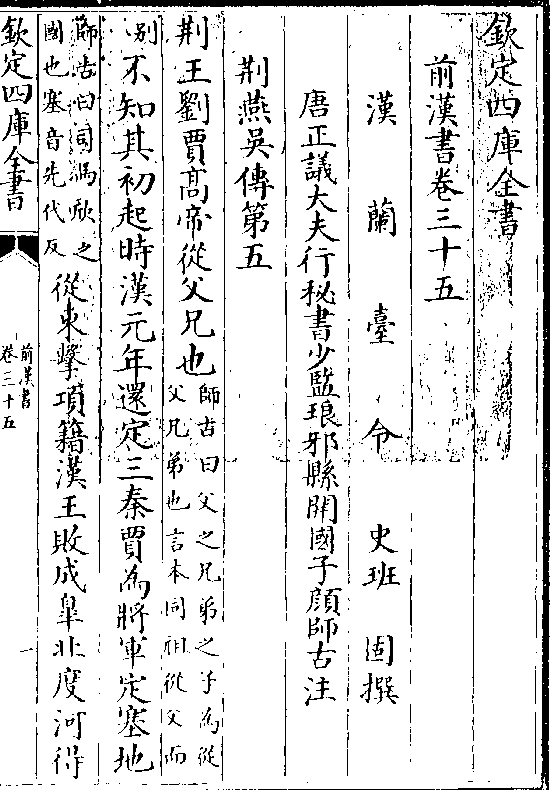 欽定四庫全書
前漢書卷三十五
漢蘭臺令史班固撰
唐正議大夫行秘書少監琅邪縣開國子顔師古注
荆燕吳傳第五
荆王劉賈高帝從父兄也師古曰父之兄弟之子為從父兄弟也言本同祖從父而
别不知其初起時漢元年還定三秦賈為將軍定塞地
師古曰司馬欣之國也塞音先代反從東擊項籍漢王敗成臯北度河得
欽定四庫全書
前漢書
卷三十五
一